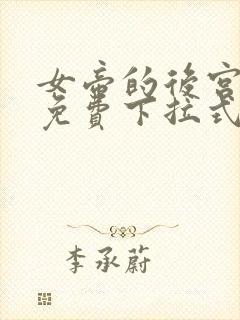 女帝的後宮
免費下拉式
李承蔚